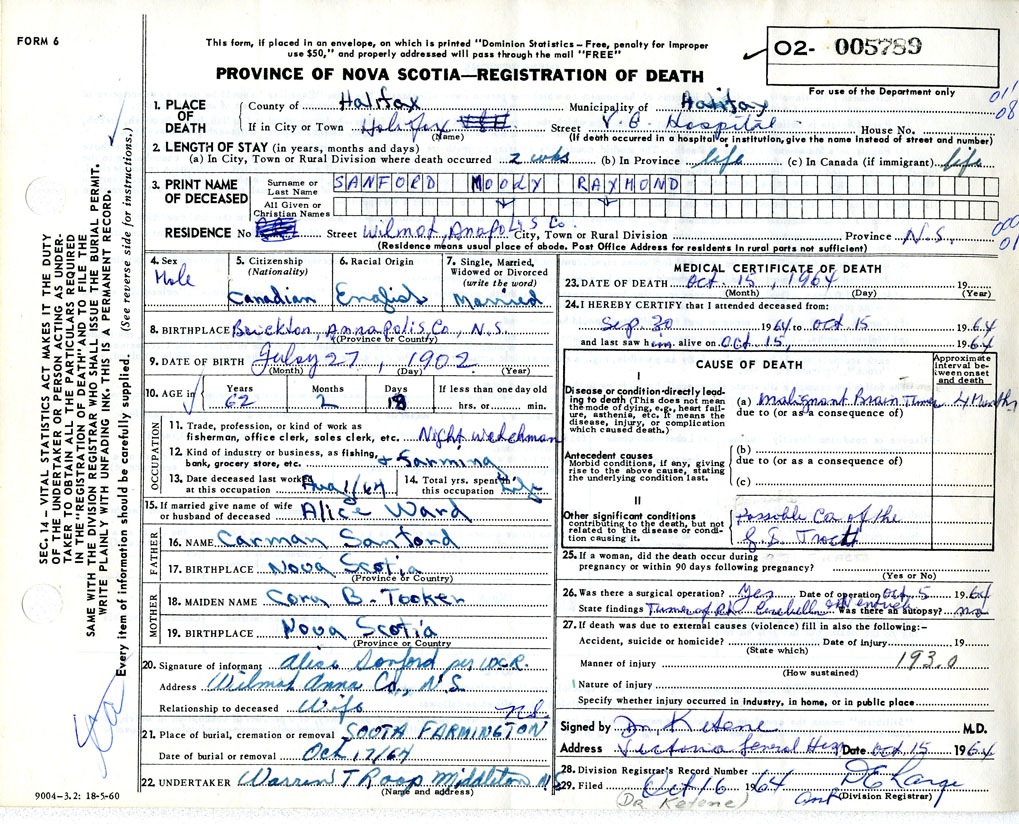 FORM 6
This form, if placed in an envelope, on which is printed "Dominion Statistics – Free, penalty for improper
use $50," and properly addressed will pass through the mail "FREE"
O2- 005789
For use of the Department only
PROVINCE OF NOVA SCOTIA—REGISTRATION OF DEATH
1. PLACE OF DEATH County of Halifax Municipality of Halifax
If in City or Town Halifax (Name) Street V.G. Hospital House No.
(If death occurred in a hospital or institution, give the name instead of street and number)
2. LENGTH OF STAY (in years, months and days)
(a) In City, Town or Rural Division where death occurred 2 wks (b) In Province life (c) In Canada (if immigrant) life
3. PRINT NAME OF DECEASED Surname or Last Name SANFORD MOODY RAYMOND
All Given or Christian Names
RESIDENCE No Street Wilmot, Anapolis Co. City, Town or Rural Division Province N.S.
(Residence means usual place of abode. Post Office Address for residents in rural parts not sufficient)
4. Sex Male
5. Citizenship (Nationality) Canadian
6. Racial Origin English
7. Single, Married, Widowed or Divorced (write the word) Married
8. BIRTHPLACE Brickton, Annapolis, Co., N.S.
(Province or Country)
9. DATE OF BIRTH July 27, 1902
(Month) (Day) (Year)
10. AGE in Years 62 Months 2 Days 18 If less than one day old hrs. or min.
OCCUPATION
11. Trade, profession, or kind of work as fisherman, office clerk, sales clerk, etc. Night Watchman
12. Kind of industry or business, as fishing, bank, grocery store, etc. & Farming
13. Date deceased last worked at this occupation Aug 1/64
14. Total yrs. spent in this occupation life
15. If married give name of wife or husband of deceased Alice Ward
FATHER
16. NAME Carman Sanford
17. BIRTHPLACE Nova Scotia
(Province or Country)
MOTHER
18. MAIDEN NAME Cora B. Tooker
19. BIRTHPLACE Nova Scotia
(Province or Country)
20. Signature of informant Alice Sanford per
Address Wilmot Anna Co., N.S.
Relationship to deceased Wife
N.S.
21. Place of burial, cremation or removal SOUTH FARMINGTON
Date of burial or removal Oct 17/64
22. UNDERTAKER Warren T Roop Middleton N.S.
(Name and address)
9004-3.2: 18-5-60
MEDICAL CERTIFICATE OF DEATH
23. DATE OF DEATH Oct. 15, 1964 19
(Month) (Day) (Year)
24. I HEREBY CERTIFY that I attended deceased from:
Sep. 30 1964 to Oct 15 1964
and last saw him alive on Oct 15, 1964
CAUSE OF DEATH
Approximate interval between onset and death
I
Disease or condition directly leading to death (This does not mean the mode of dying, e.g., heart failure, asthenia, etc. It means the disease, injury, or complication which caused death.)
(a) Malignant Brain Tumor 4 Months
due to (or as a consequence of)
Antecedent causes
Morbid conditions, if any, giving rise to the above cause, stating the underlying condition last.
(b)
due to (or as a consequence of)
(c)
II
Other significant conditions
contributing to the death, but not related to the disease or condition causing it.
Possible Ca. of the
G. I. Tract
25. If a woman, did the death occur during
pregnancy or within 90 days following pregnancy?
(Yes or No)
26. Was there a surgical operation? Yes Date of operation Oct 5 1964
State findings Tumor of Rt. Was there an autopsy? no
27. If death was due to external causes (violence) fill in also the following:–
Accident, suicide or homicide? Date of injury 19
(State which)
Manner of injury 193.0
(How sustained)
Nature of injury
Specify whether injury occurred in industry, in home, or in public place
Signed by Dr. Ketene M.D.
Address Victoria General Date Oct 15 1964
28. Division Registrar's Record Number
29. Filed Oct 16 1964
(Division Registrar)
(Dr. Ketene)
SEC. 14 – VITAL STATISTICS ACT MAKES IT THE DUTY
OF THE UNDERTAKER OR PERSON ACTING AS UNDER-
TAKER TO OBTAIN ALL THE PARTICULARS REQUIRED
IN THE "REGISTRATION OF DEATH" AND TO FILE THE
SAME WITH THE DIVISION REGISTRAR WHO SHALL ISSUE THE BURIAL PERMIT.
WRITE PLAINLY WITH UNFADING INK. THIS IS A PERMANENT RECORD.
Every item of information should be carefully supplied. (See reverse side for instructions.)